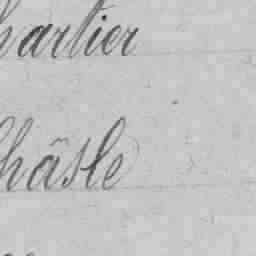 hartier
hâsle